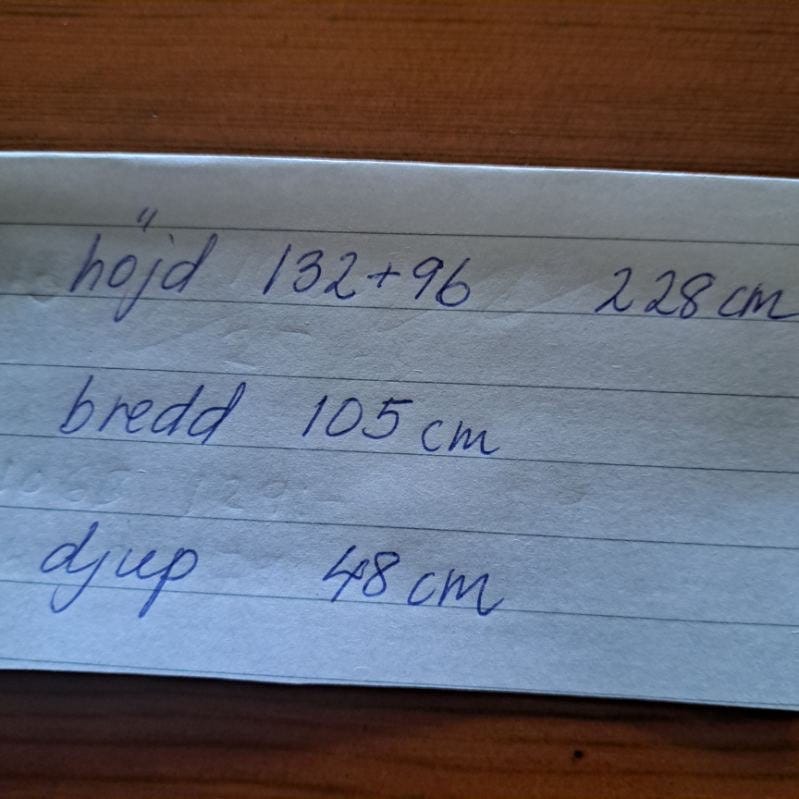 höjd 132+96 228 cm
bredd 105 cm
djup 48 cm